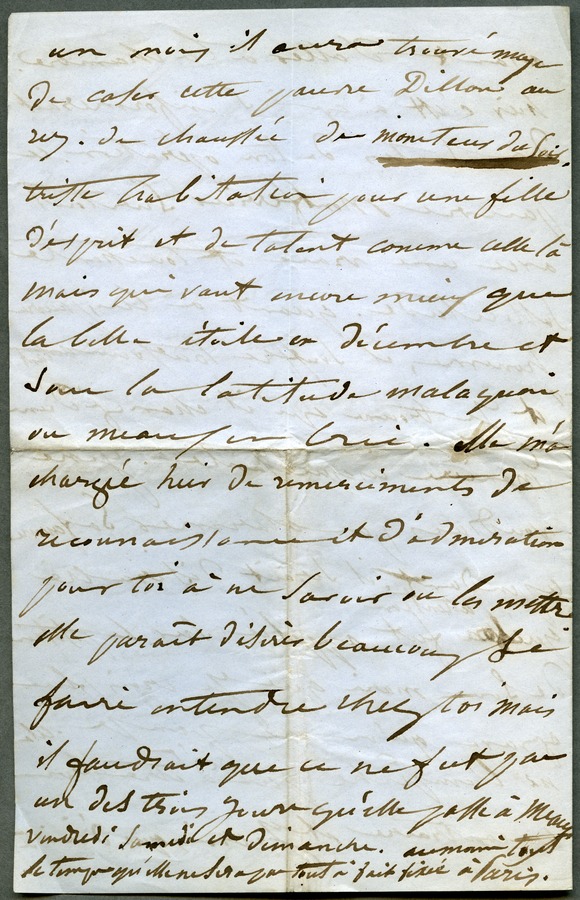 un mois il aura trouvé moyen
de caser cette pauvre Dillon au
rez. de chaussée du moniteur du Soir.
triste habitation pour une fille
d'esprit et de talent comme celle là
mais qui vaut encore mieux que
la belle étoile en décembre et
sous la latitude malaquoi
ou meaux en brie. Elle m'a
chargé hier de remerciments de
reconnaissance et d'admiration
pour toi à ne savoir où les mettre
elle paraît désirer beaucoup se
faire entendre chez toi mais
il faudrait que ce ne fut pas
un des trois jours qu'elle passe à Meaux
vendredi Samedi et dimanche. au moins tout
le temps qu'elle ne sera pas tout à fait fixée à Paris.